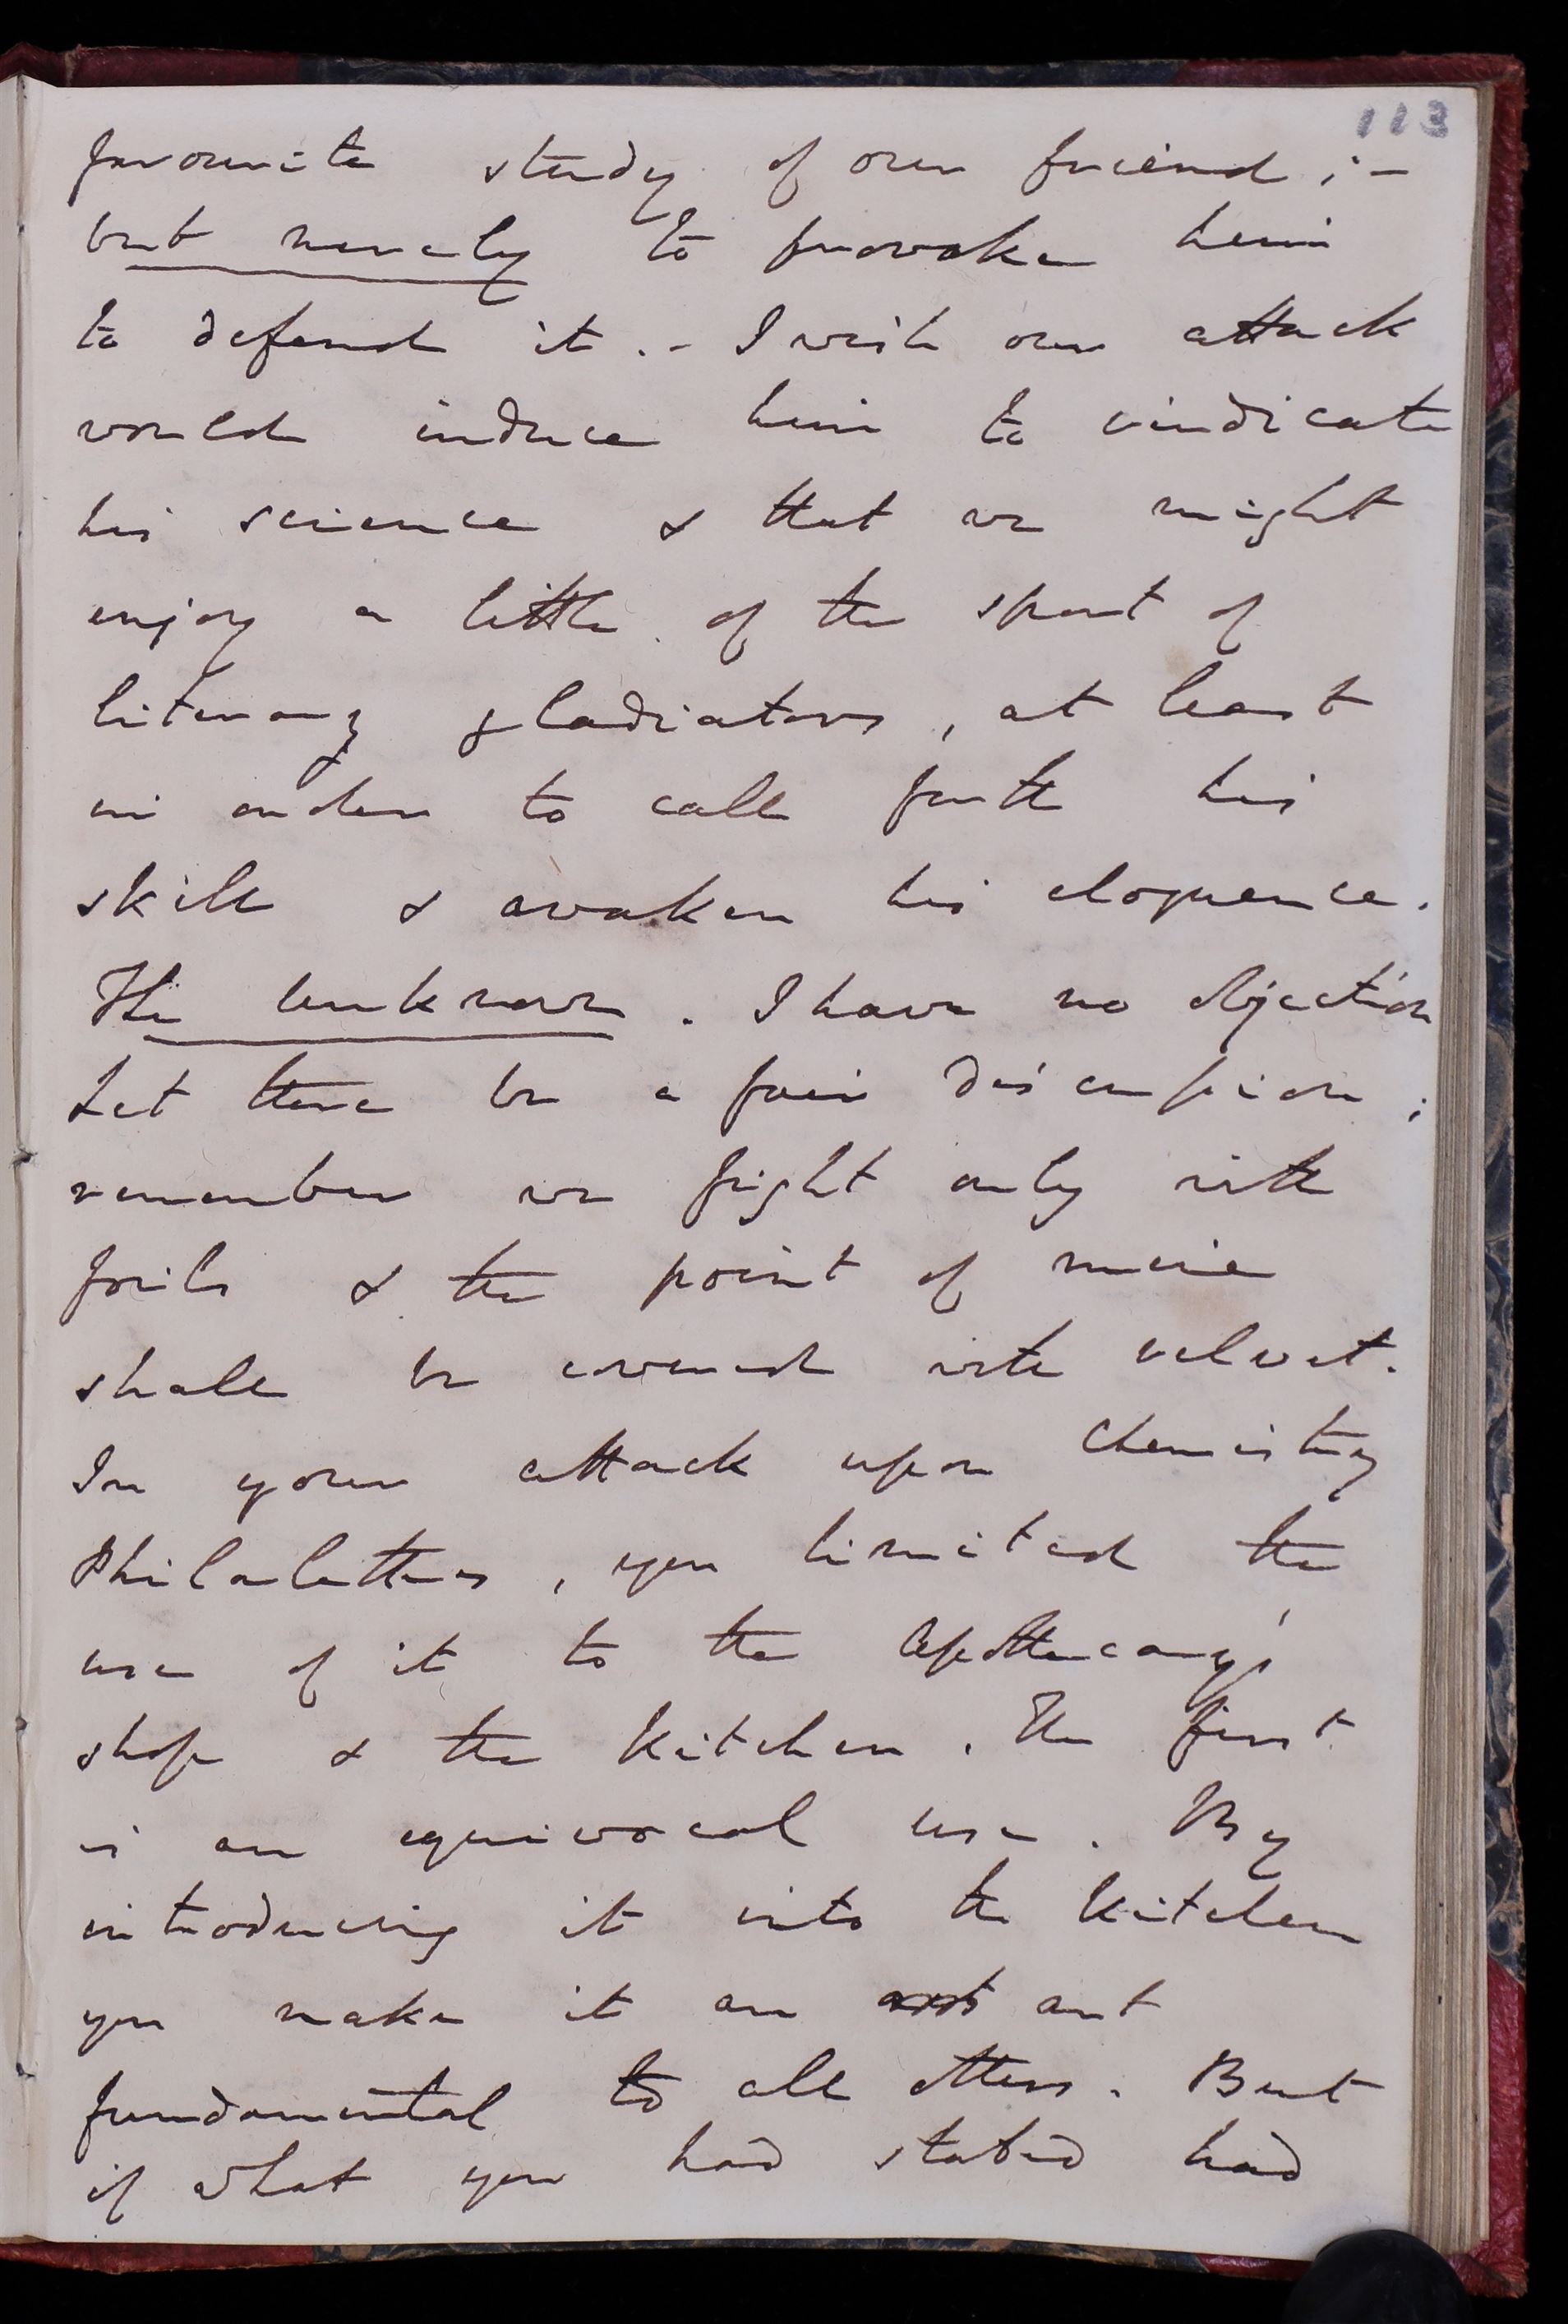 113
favourite study of our friend; –
but merely to provoke him
to defend it. – I wish our attack
would induce him to vindicate
his science & that we might
enjoy a little of the sport of
literary gladiators, at least
in order to call forth his
skill & awaken his eloquence.
The Unknown. I have no objection
Let there be a fair discussion;
remember we fight only with
foils & the point of mine
shall be covered with velvet.
In your attack upon Chemistry
Philalethes, you limited the
use of it to the Apothecary's
shop & the kitchen. The first
is an equivocal use. By
introducing it into the kitchen
you make it an art
fundamental to all others. But
if what you had stated had